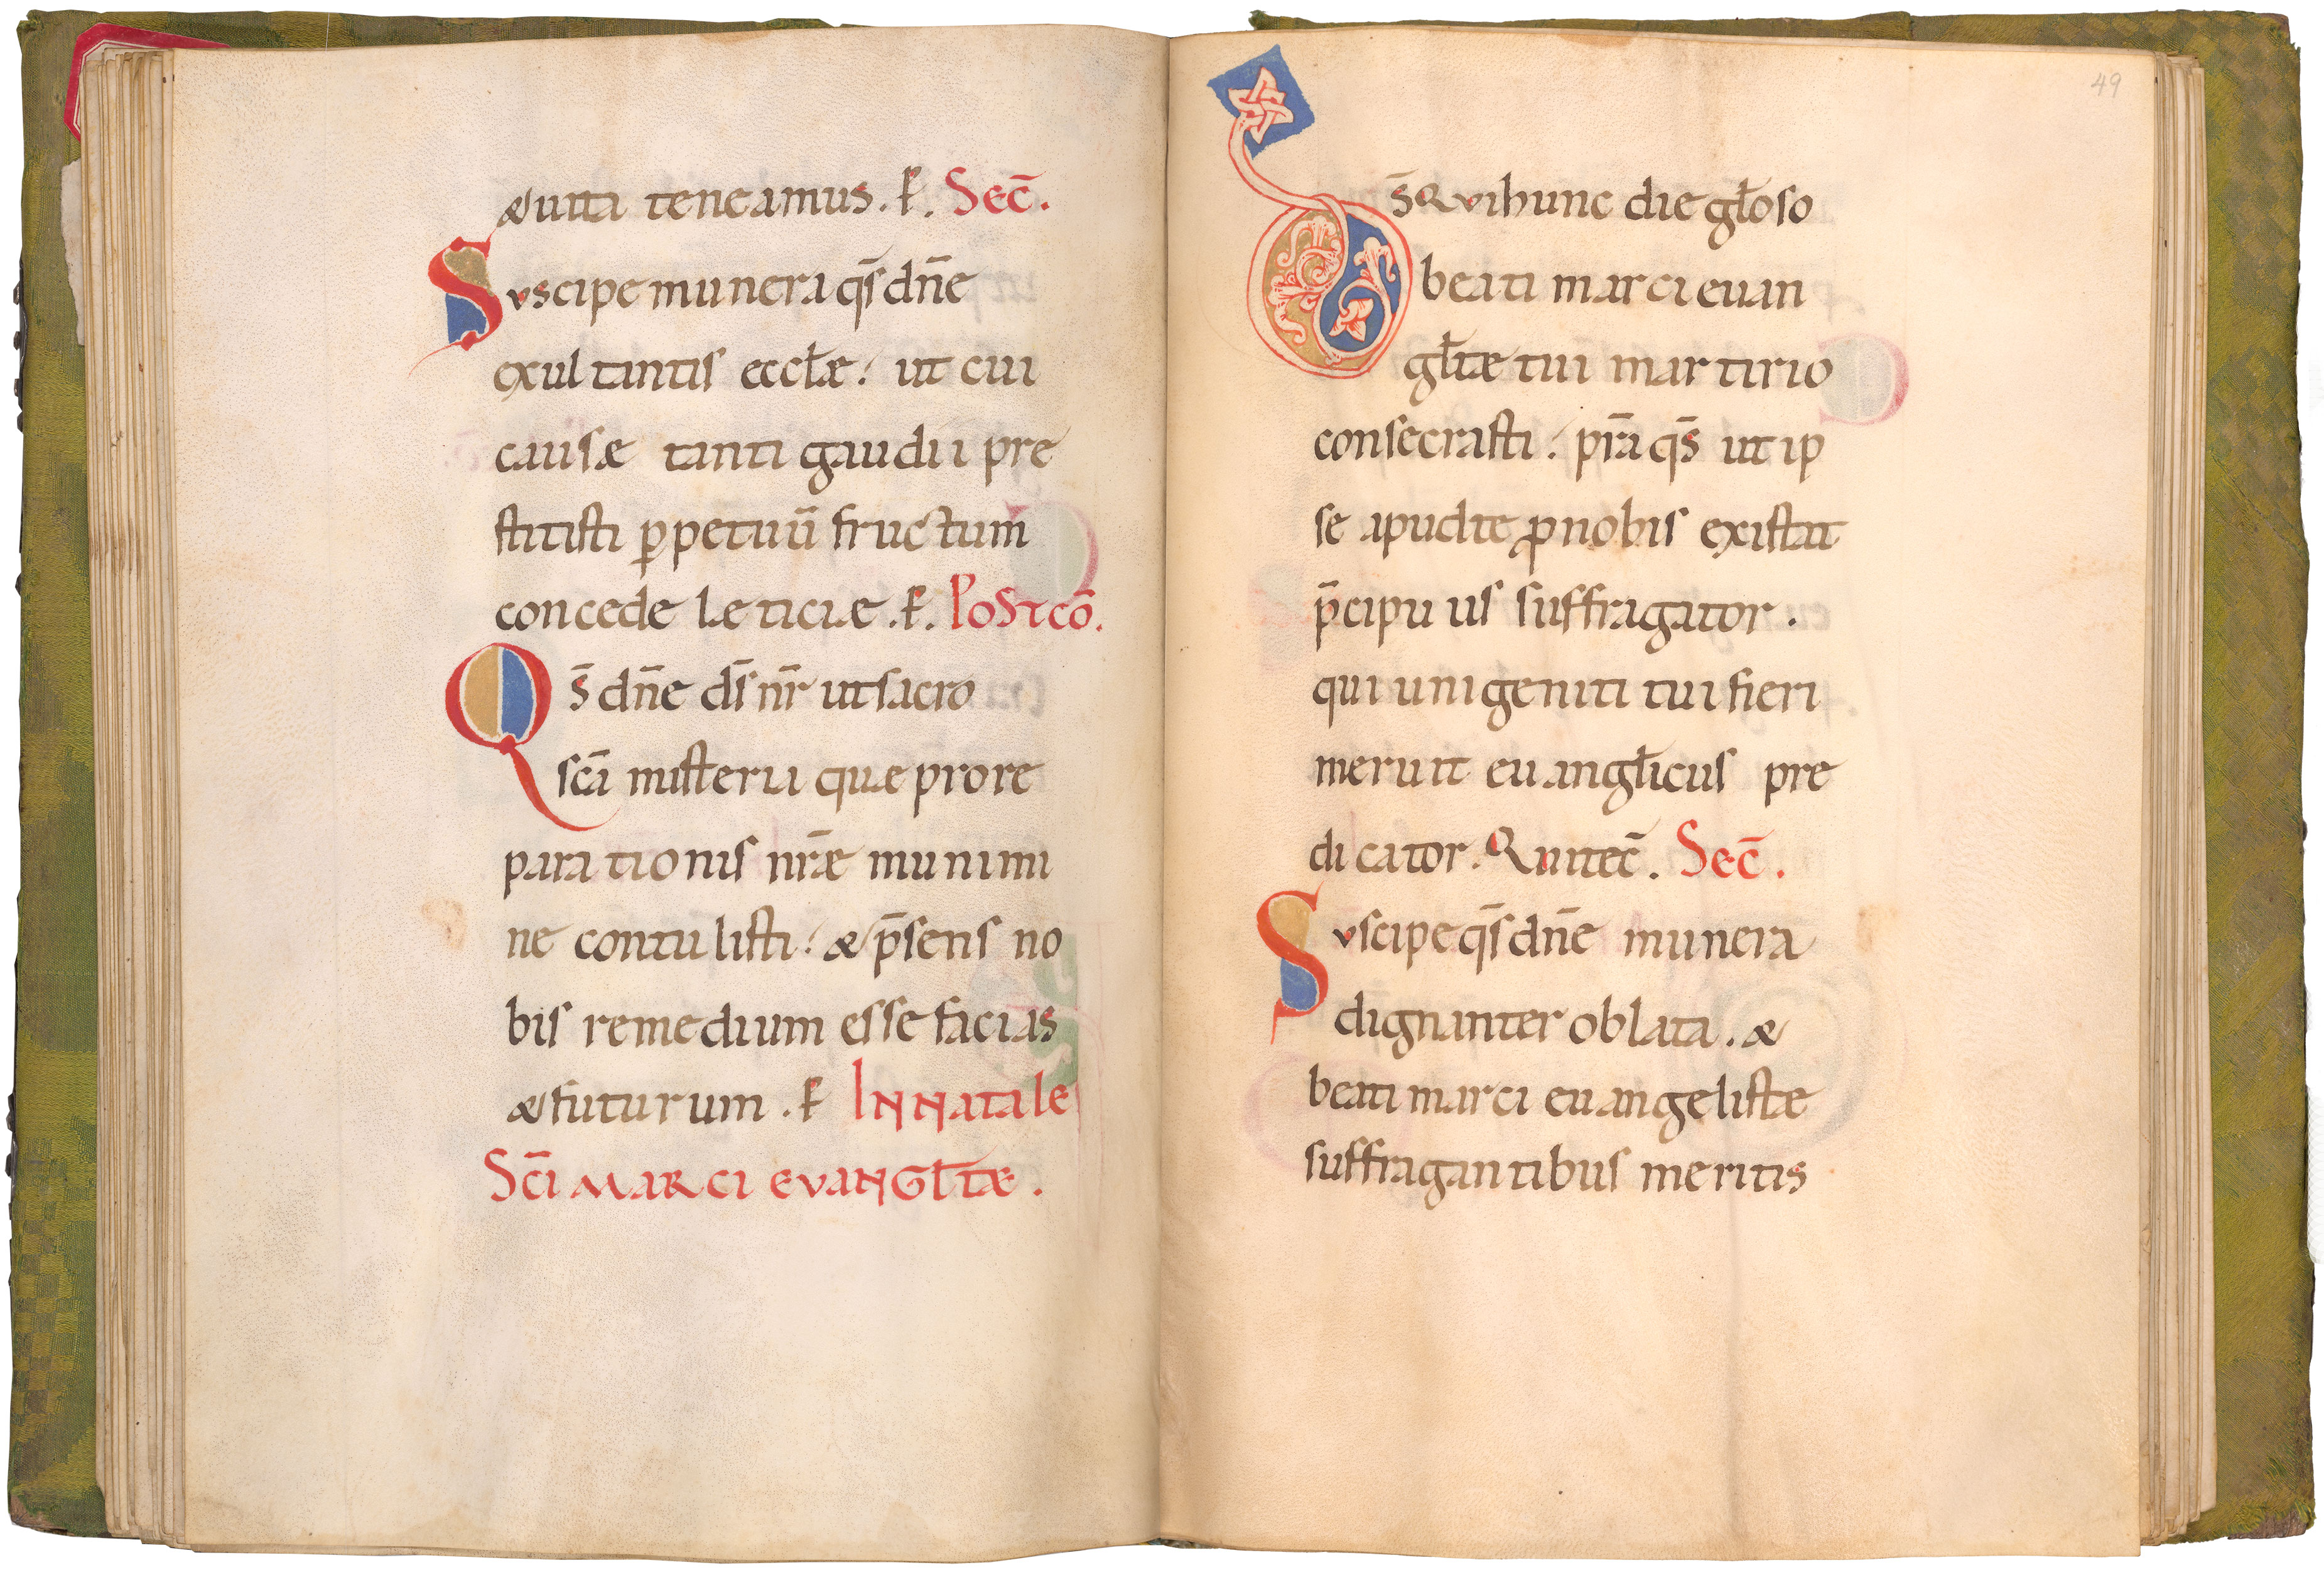 & uita teneamus. ꝑ. Sec̄.
Suscipe munera qs̄ dn̄e
exultantis eccłæ; ut cui
causæ tanti gaudii pre
stitisti ꝑpetuū fructum
concede læticiæ. ꝑ. Postcō.
Qs̄ dn̄e ds̄ nr̄ ut sacro
sc̄a misteria quæ pro re
parationis nr̄æ munimi
ne contulisti; & p̄sens no
bis remedium esse facias
& futurum. ꝑ In natale
Sc̄i Marci evangłtæ.
49
Ds̄ qui hunc die głoso
beati marci euan
głtæ tui martirio
consecrasti; pr̄a qs̄ ut ip
se apud te ꝓ nobis existat
p̄cipuus suffragator.
qui unigeniti tui fieri
meruit euangłicus pre
dicator. Qui tec̄. Sec̄.
Suscipe qs̄ dn̄e munera
dignanter oblata. &
beati marci euangelistæ
suffragantibus meritis